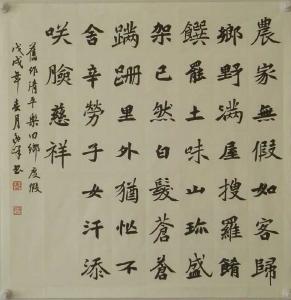 農家無假如客歸
鄉野滿屋搜羅餚
饌罷土味山珎盛
架已然白髮蒼蒼
蹣跚里外猶忙不
舍辛勞子女汗添
咲臉慈祥
舊作清平樂回鄉度假
戊戌年春月書